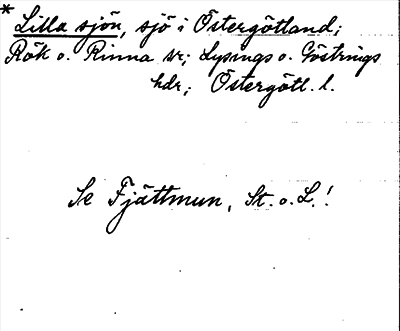 * Lilla sjön, sjö i Östergötland;
Rök o. Rinna sr; Lysings o. Göstrings
hdr; Östergötl. l.
Se Fjättmun, St. o. L.!